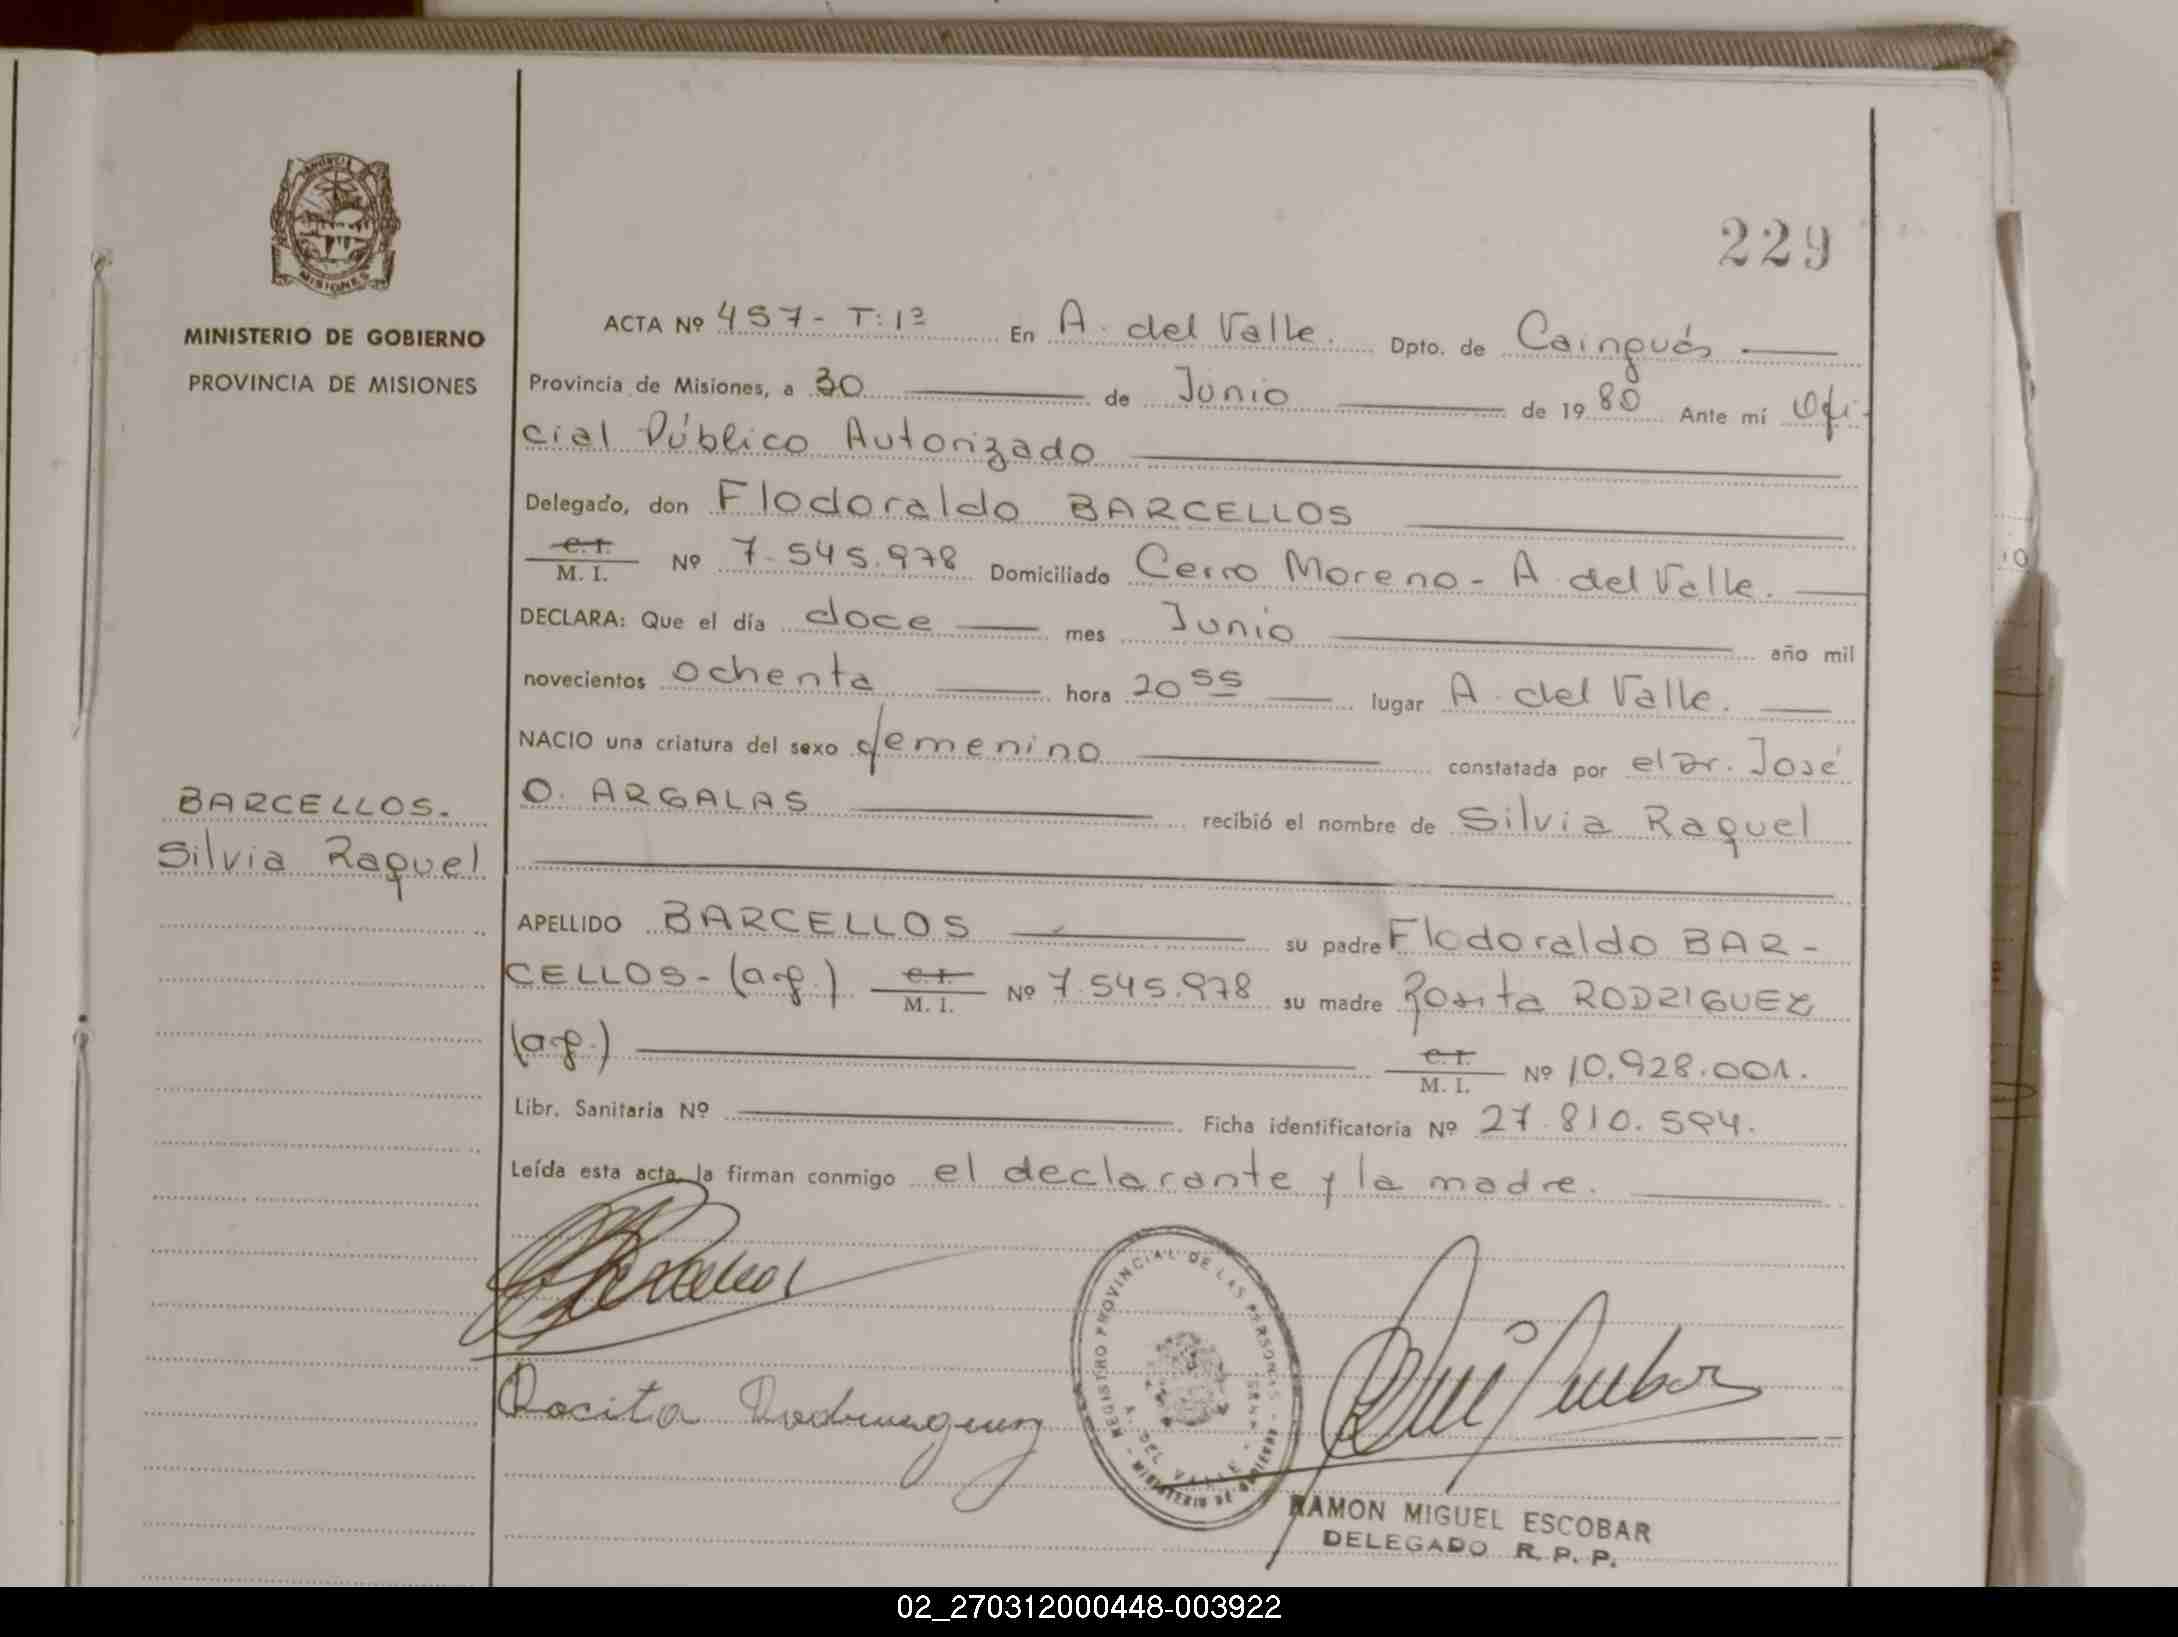 229
MINISTERIO DE GOBIERNO
PROVINCIA DE MISIONES
BARCELLOS.
Silvia Raquel
ACTA Nº 457- T:1º En A. del Valle. Dpto. de Cainguás
Provincia de Misiones, a 30 de Junio de 1980 Ante mí Ofi-
cial Público Autorizado
Delegado, don Flodoraldo BARCELLOS
C. I. M. I. Nº 7.545.978 Domiciliado Cerro Moreno - A. del Valle.
DECLARA: Que el día doce mes Junio año mil
novecientos ochenta hora 20 55 lugar A. del Valle.
NACIO una criatura del sexo femenino constatada por el Dr. José
O. ARGALAS recibió el nombre de Silvia Raquel
APELLIDO BARCELLOS su padre Flodoraldo BAR-
CELLOS - (a.f.) C. I. M. I. Nº 7.545.978 su madre Rosita RODRIGUEZ
(a.f.) C. I. M. I. Nº 10.928.001.
Libr. Sanitaria Nº Ficha identificatoria Nº 27.810.594.
Leída esta acta, la firman conmigo el declarante y la madre.
REGISTRO PROVINCIAL DE LAS PERSONAS
A. DEL VALLE
MINISTERIO DE GOBIERNO
MISIONES
Rocita Rodriuguez
RAMON MIGUEL ESCOBAR
DELEGADO R. P. P.
02_270312000448-003922